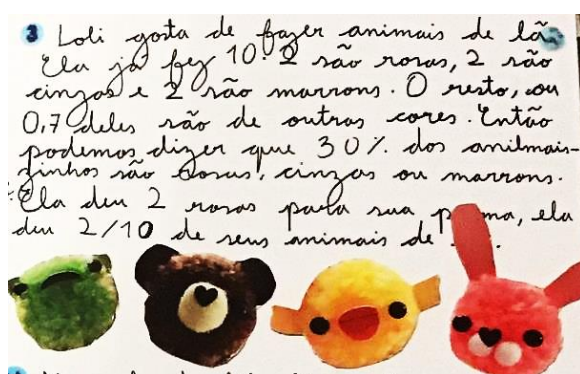 3 Loli gosta de fazer animais de lã
Ela já fez 10. 2 são rosas, 2 são
cinzas e 2 são marrons. O resto, ou
0,7 deles são de outras cores. Então
podemos dizer que 30% dos anilmais-
zinhos são rosas, cinzas ou marrons.
Ela deu 2 rosas para sua prima, ela
deu 2/10 de seus animais de